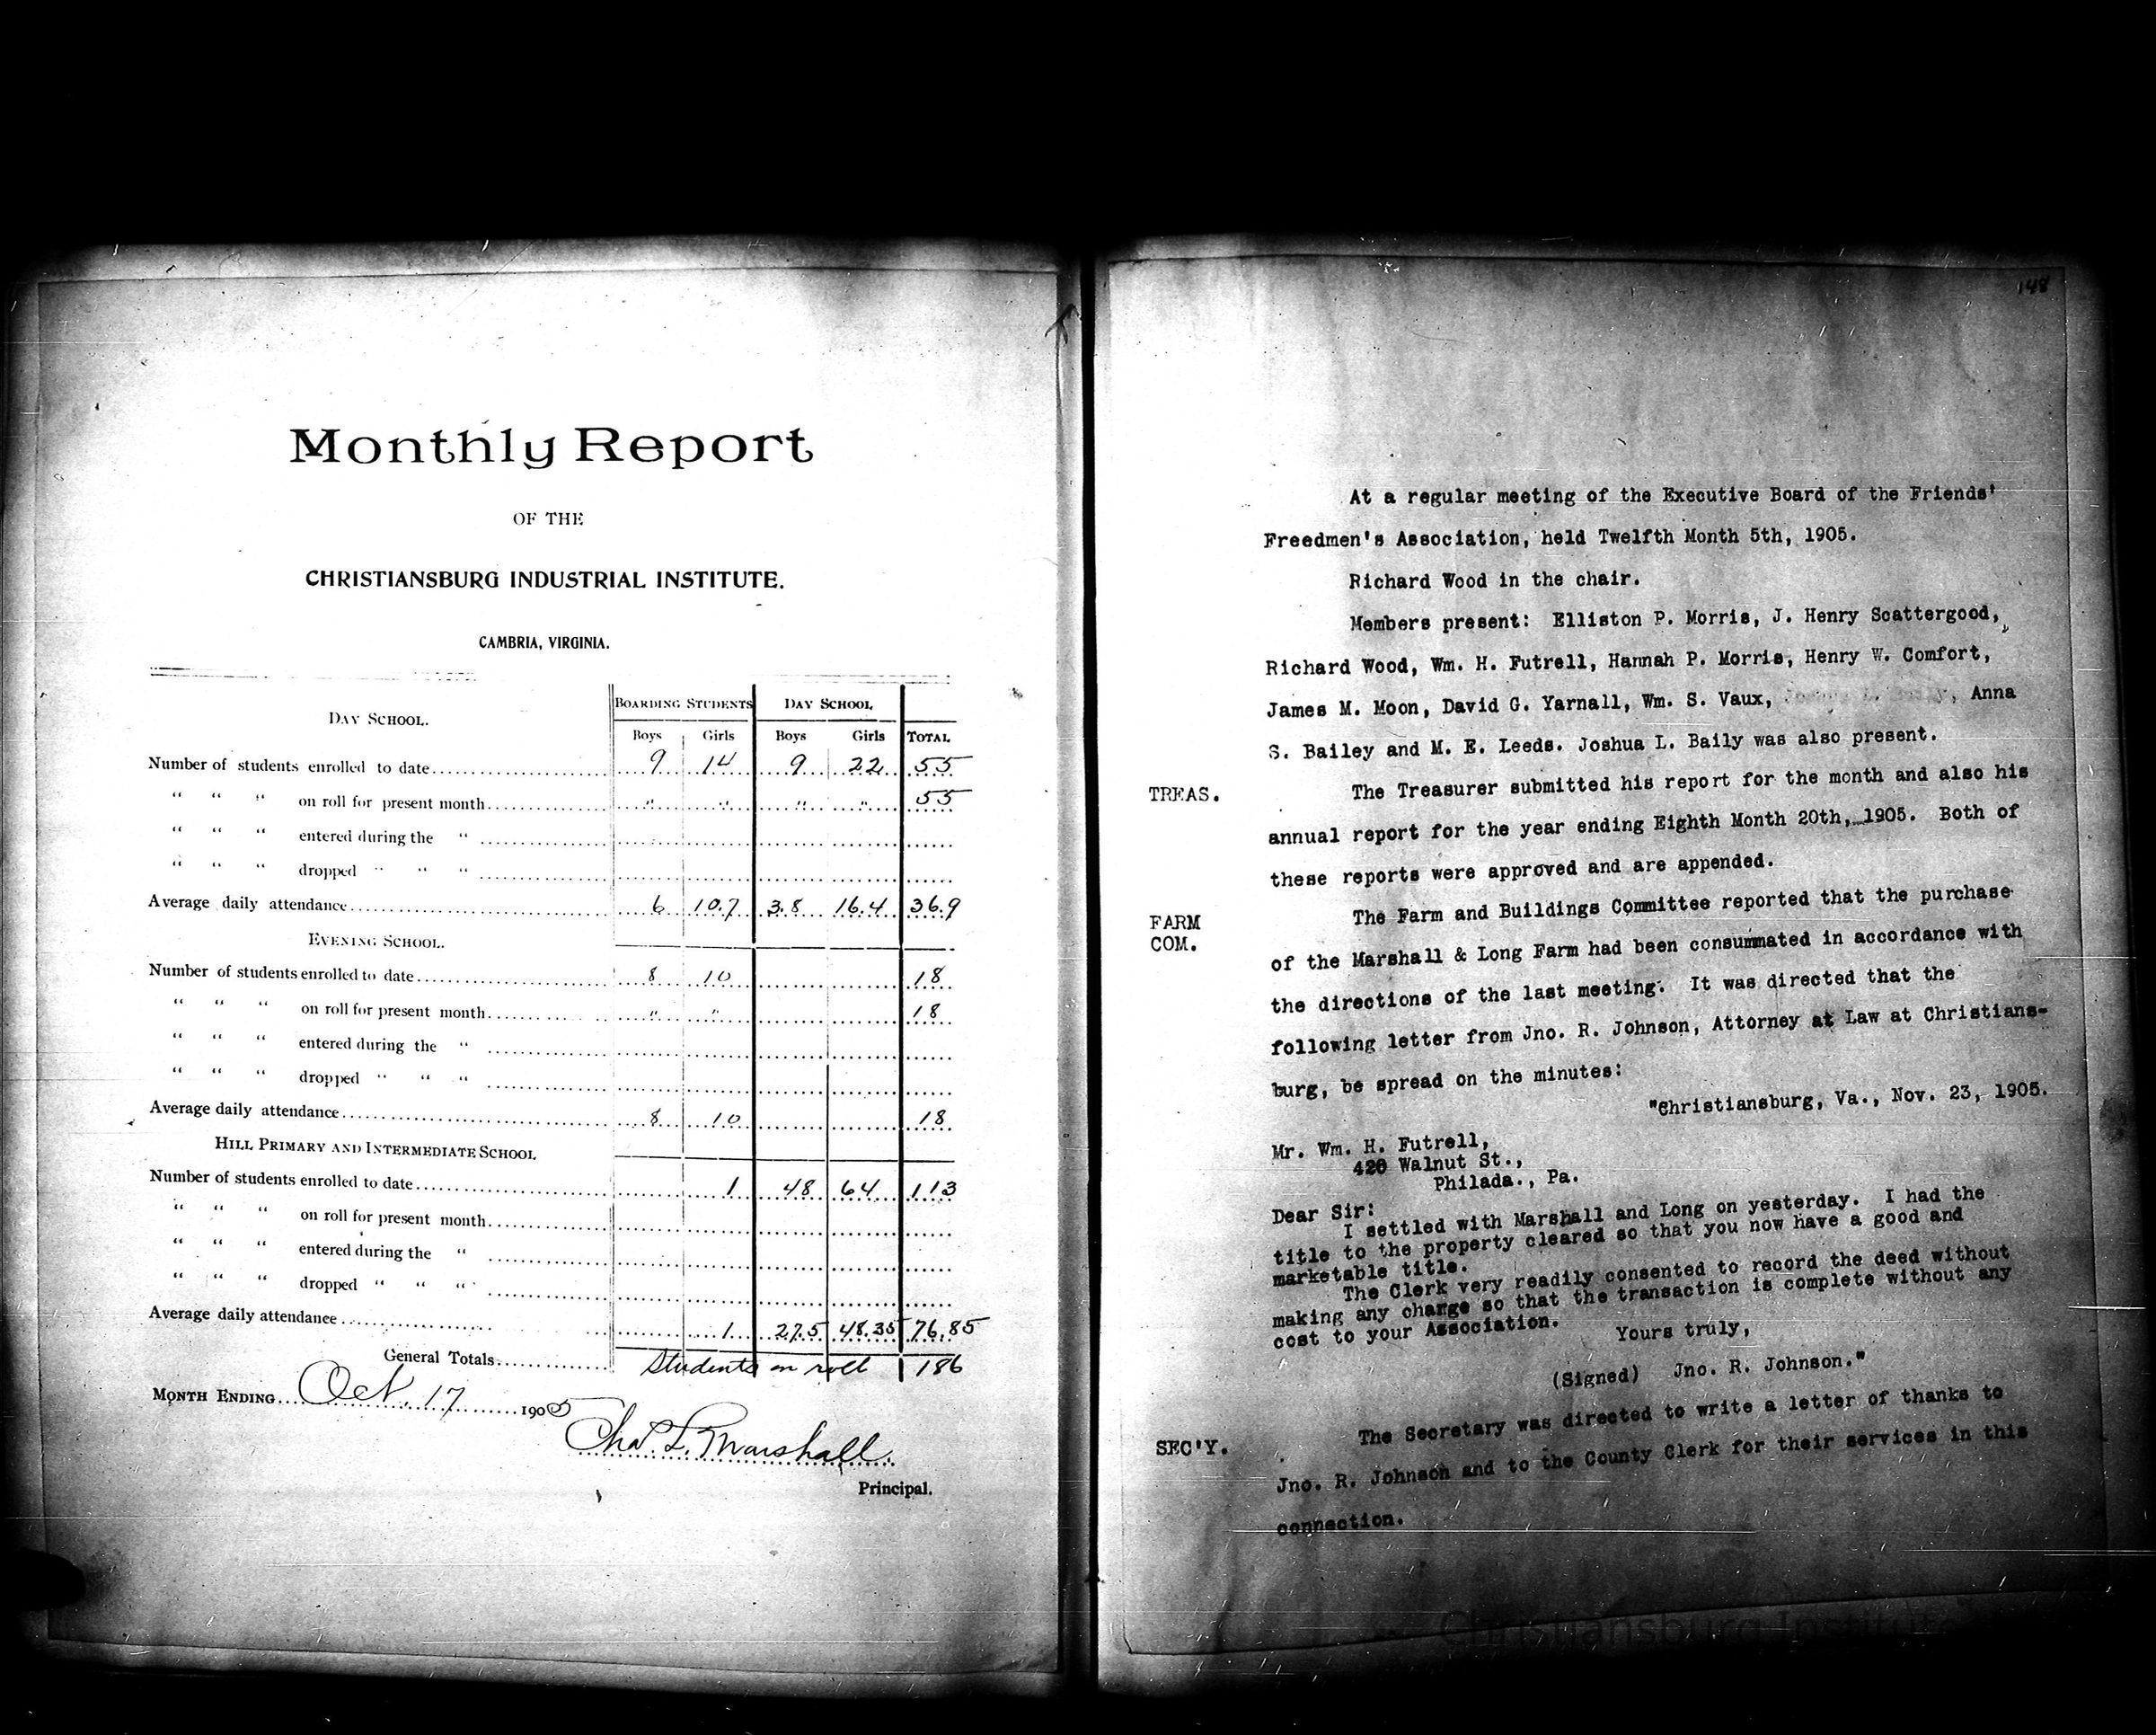 Monthly Report
OF THE
CHRISTIANSBURG INDUSTRIAL INSTITUTE.
CAMBRIA, VIRGINIA.
DAY SCHOOL. BOARDING STUDENTS DAY SCHOOL
Boys Girls Boys Girls TOTAL
Number of students enrolled to date 9 14 9 22 55
" " " on roll for present month " " " " 55
" " " entered during the "
" " " dropped " " "
Average daily attendance 6 10.7 3.8 16.4 36.9
EVENING SCHOOL.
Number of students enrolled to date 8 10 18
" " " on roll for present month " " 18
" " " entered during the "
" " " dropped " " "
Average daily attendance 8 10 18
HILL PRIMARY AND INTERMEDIATE SCHOOL
Number of students enrolled to date 1 48 64 113
" " " on roll for present month
" " " entered during the "
" " " dropped " " "
Average daily attendance 1 27.5 48.35 76.85
General Totals Students on roll 186
MONTH ENDING Oct. 17 1905
Chas. L. Marshall
Principal.
148
At a regular meeting of the Executive Board of the Friends'
Freedmen's Association, held Twelfth Month 5th, 1905.
Richard Wood in the chair.
Members present: Elliston P. Morris, J. Henry Scattergood,
Richard Wood, Wm. H. Futrell, Hannah P. Morris, Henry W. Comfort,
James M. Moon, David G. Yarnall, Wm. S. Vaux, Anna
S. Bailey and M. E. Leeds. Joshua L. Baily was also present.
TREAS. The Treasurer submitted his report for the month and also his
annual report for the year ending Eighth Month 20th, 1905. Both of
these reports were approved and are appended.
FARM COM. The Farm and Buildings Committee reported that the purchase
of the Marshall & Long Farm had been consummated in accordance with
the directions of the last meeting. It was directed that the
following letter from Jno. R. Johnson, Attorney at Law at Christians-
burg, be spread on the minutes:
"Christiansburg, Va., Nov. 23, 1905.
Mr. Wm. H. Futrell,
420 Walnut St.,
Philada., Pa.
Dear Sir:
I settled with Marshall and Long on yesterday. I had the
title to the property cleared so that you now have a good and
marketable title.
The Clerk very readily consented to record the deed without
making any charge so that the transaction is complete without any
cost to your Association.
Yours truly,
(Signed) Jno. R. Johnson."
SEC'Y. The Secretary was directed to write a letter of thanks to
Jno. R. Johnson and to the County Clerk for their services in this
connection.
Christiansburg Institute